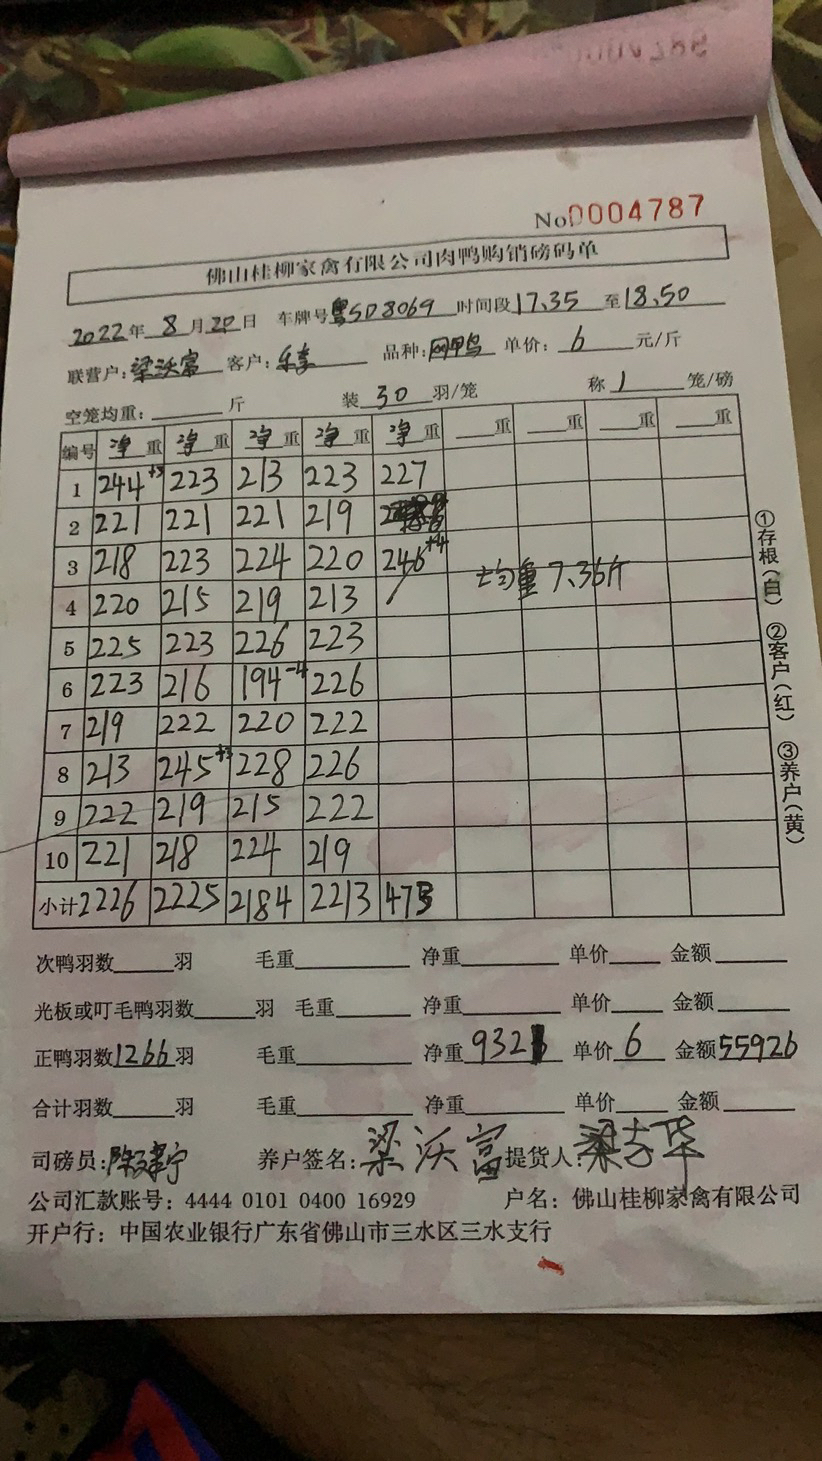 No0004787
佛山桂柳家禽有限公司肉鸭购销磅码单
2022年 8月20日 车牌号粤SD8069 时间段17.35 至18.50
联营户:梁沃富 客户: 品种: 网鸭 单价: 6 元/斤
空笼均重: 斤 装 30 羽/笼 称 1 笼/磅
编号 净重 净重 净重 净重 净重 重 重 重 重
1 244+3 223 213 223 227
2 221 221 221 219
3 218 223 224 220 246+4
4 220 215 219 213 /
均重7.36斤
5 225 223 226 223
6 223 216 194-4 226
7 219 222 220 222
8 213 245+3 228 226
9 222 219 215 222
10 221 218 224 219
小计 2226 2225 2184 2213 473
①存根(白) ②客户(红) ③养户(黄)
次鸭羽数 羽 毛重 净重 单价 金额
光板或叮毛鸭羽数 羽 毛重 净重 单价 金额
正鸭羽数1266羽 毛重 净重 9321 单价 6 金额55926
合计羽数 羽 毛重 净重 单价 金额
司磅员: 养户签名:梁沃富 提货人:
公司汇款账号: 4444 0101 0400 16929 户名: 佛山桂柳家禽有限公司
开户行: 中国农业银行广东省佛山市三水区三水支行